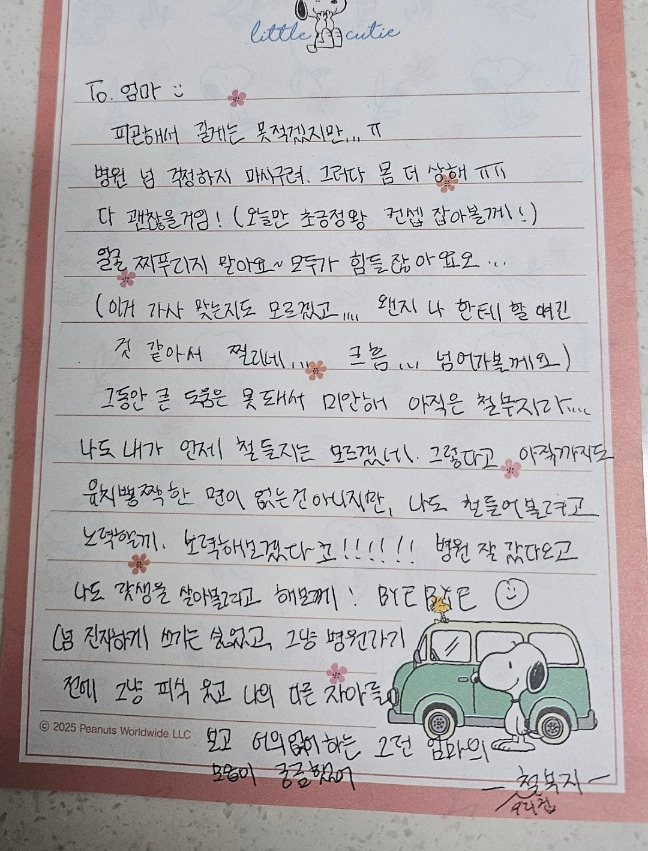 little cutie
To. 엄마
피곤해서 길게는 못적겠지만... ㅠ
병원 넘 걱정하지 마시구려. 그러다 몸 더 상해 ㅠㅠ
다 괜찮을거임! (오늘만 초긍정왕 컨셉 잡아볼께!)
얼굴 찌푸리지 말아요~ 모두가 힘들잖아요오...
(이거 가사 맞는지도 모르겠고.... 왠지 나 한테 할 얘긴
것 같아서 찔리네... 크흠... 넘어가볼께요)
그동안 큰 도움은 못돼서 미안해 아직은 철부지라....
나도 내가 언제 철들지는 모르겠네. 그렇다고 아직까지도
유치뽕짝한 면이 없는건 아니지만, 나도 철들어볼려고
노력할께. 노력해보겠다고!!!!!! 병원 잘 갔다오고
나도 갓생을 살아볼려고 해볼께! BYEBYE
(넘 진지하게 쓰기는 싫었고, 그냥 병원가기
전에 그냥 피식 웃고 나의 다른 자아를
© 2025 Peanuts Worldwide LLC
보고 어이없어하는 그런 엄마의
모습이 궁금했어